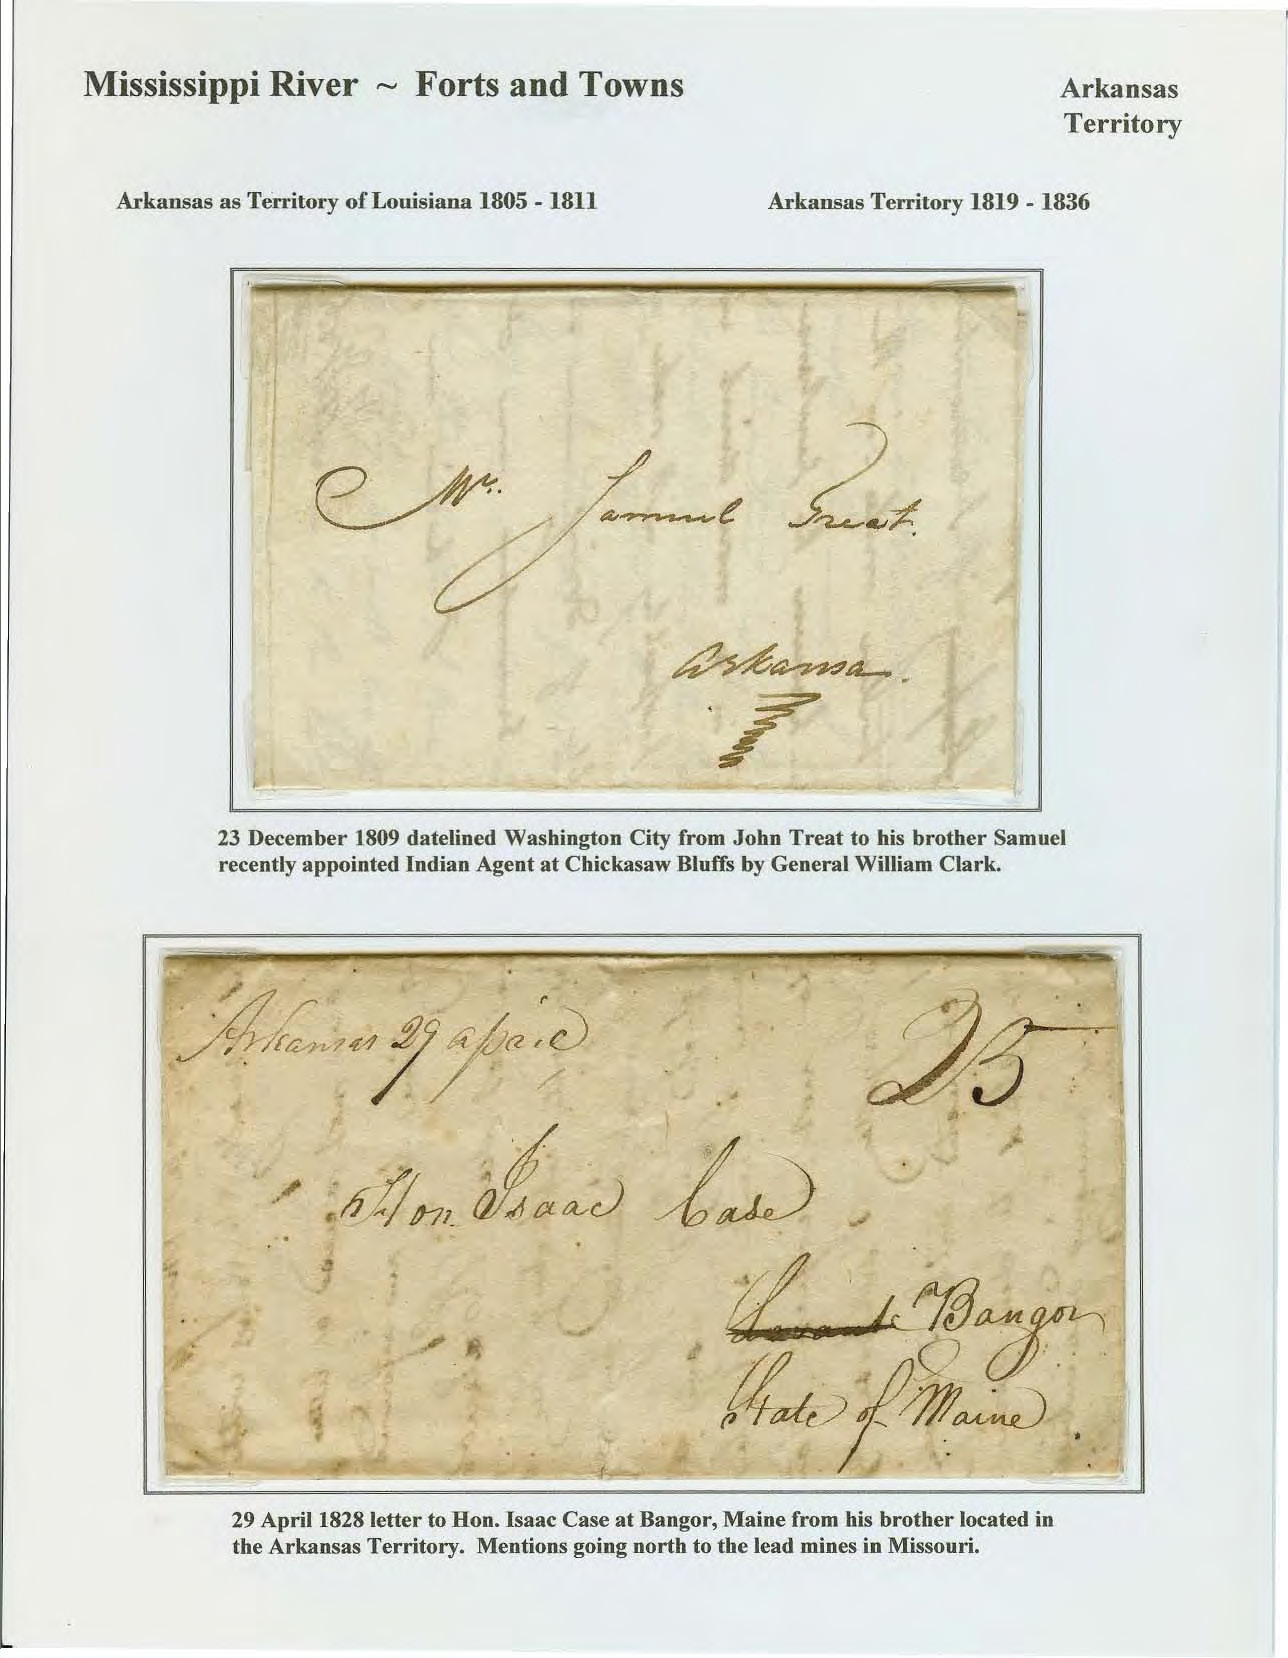 Mississippi River ~ Forts and Towns
Arkansas
Territory
Arkansas as Territory of Louisiana 1805 - 1811
Arkansas Territory 1819 - 1836
Mr. Samuel Treat.
Arkansa.
23 December 1809 datelined Washington City from John Treat to his brother Samuel
recently appointed Indian Agent at Chickasaw Bluffs by General William Clark.
Arkansas 29 april
25
Hon. Isaac Case
Bangor
State of Maine
29 April 1828 letter to Hon. Isaac Case at Bangor, Maine from his brother located in
the Arkansas Territory. Mentions going north to the lead mines in Missouri.